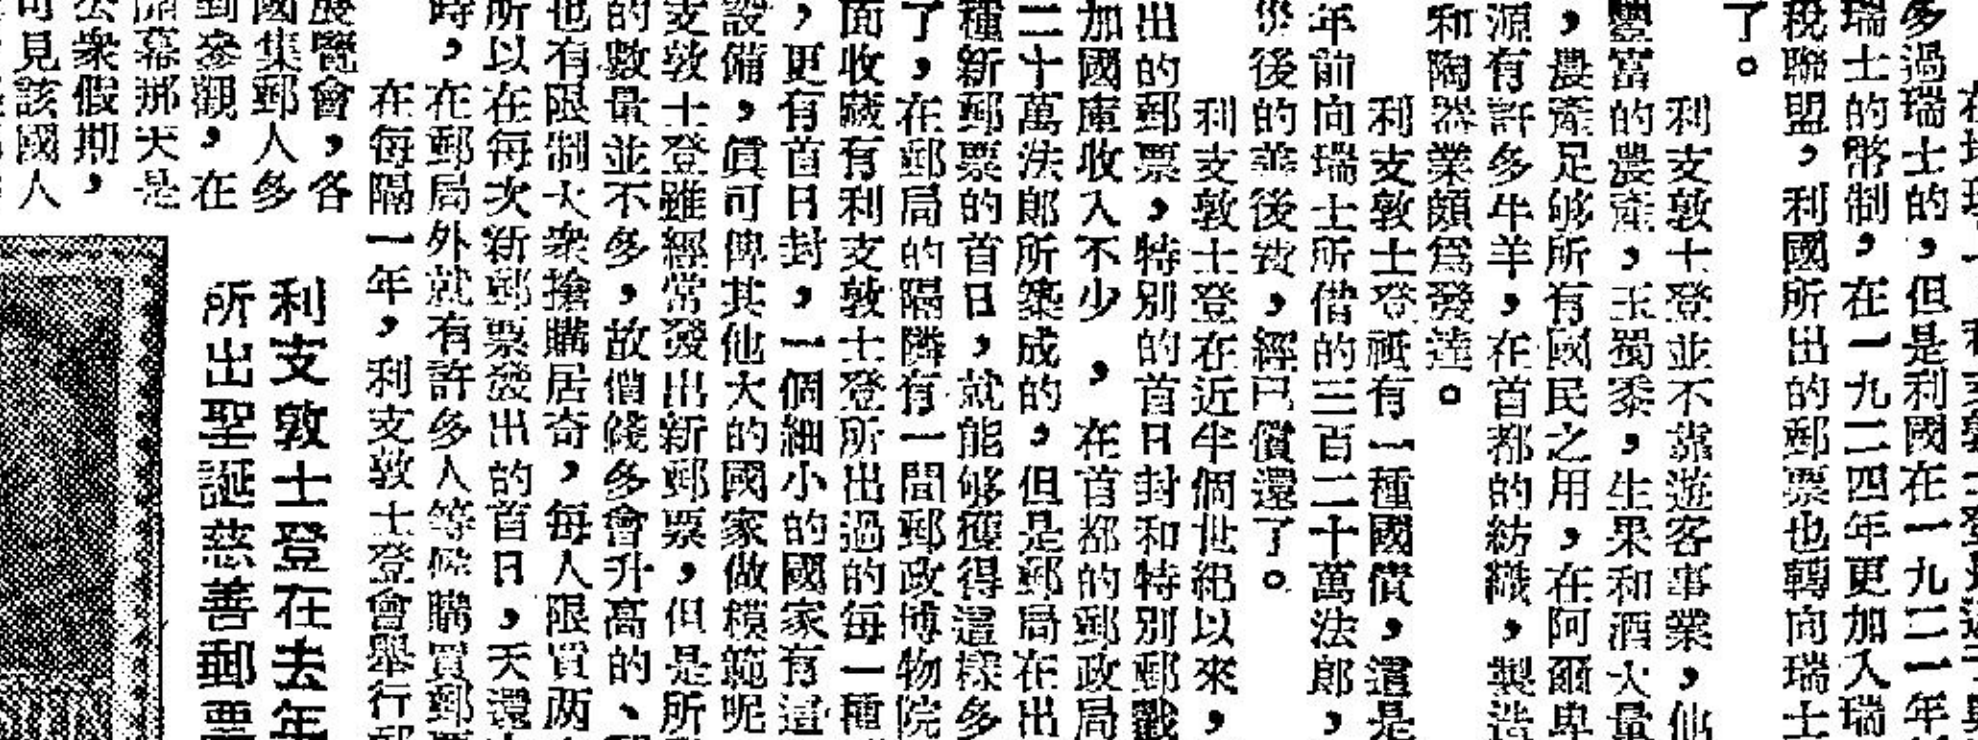 多過瑞士的，但是利國在一九二一年
瑞士的幣制，在一九二四年更加入瑞
稅聯盟，利國所出的郵票也轉向瑞士
了。
利支敦士登並不靠遊客事業，他
豐富的農產，玉蜀黍，生果和酒大量
，農產足够所有國民之用，在阿爾卑
源有許多牛羊，在首都的紡織，製造
和陶器業頗爲發達。
利支敦士登祗有一種國債，還是
年前向瑞士所借的三百二十萬法郎，
後的善後費，經已償還了。
利支敦士登在近半個世紀以來，
出的郵票，特別的首日封和特別郵戳
加國庫收入不少，在首都的郵政局
二十萬法郎所築成的，但是郵局在出
種新郵票的首日，就能够獲得這樣多
了，在郵局的隔隣有一間郵政博物院
面收藏有利支敦士登所出過的每一種
，更有首日封，一個細小的國家有這
設備，眞可俾其他大的國家做模範呢
支敦士登雖經常發出新郵票，但是所
的數量並不多，故價錢多會升高的、
也有限制大衆搶購居奇，每人限買两
所以在每次新郵票發出的首日，天還
時，在郵局外就有許多人等候購買郵
在每隔一年，利支敦士登會舉行郵
展覽會，各
國集郵人多
到參觀，在
開幕那天是
公衆假期，
可見該國人
利支敦士登在去年
所出聖誕慈善郵票